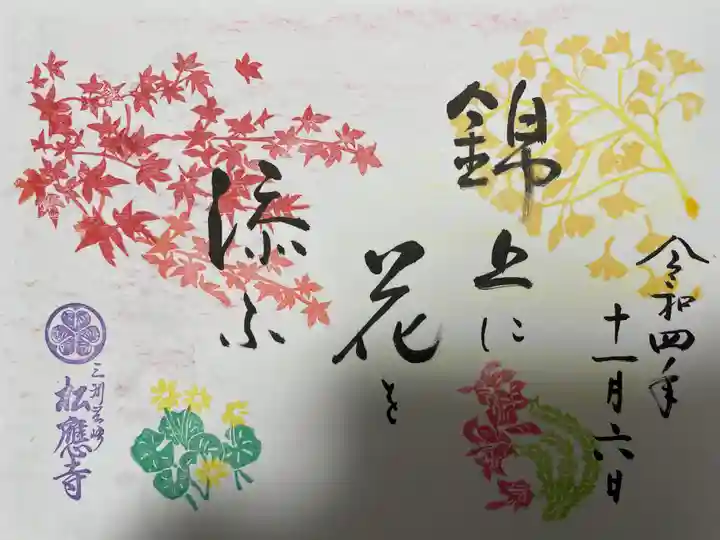 令和四年
十一月六日
錦上に
花を
添ふ
三州岡崎
松應寺